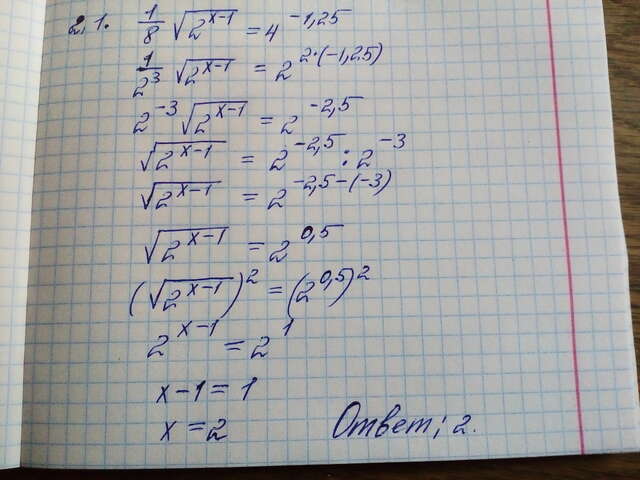 2.1. 1/8 √(2^(x-1)) = 4^(-1,25)
1/2^3 √(2^(x-1)) = 2^(2·(-1,25))
2^(-3) √(2^(x-1)) = 2^(-2,5)
√(2^(x-1)) = 2^(-2,5) : 2^(-3)
√(2^(x-1)) = 2^(-2,5-(-3))
√(2^(x-1)) = 2^(0,5)
(√(2^(x-1)))^2 = (2^(0,5))^2
2^(x-1) = 2^1
x-1 = 1
x = 2 Ответ: 2.